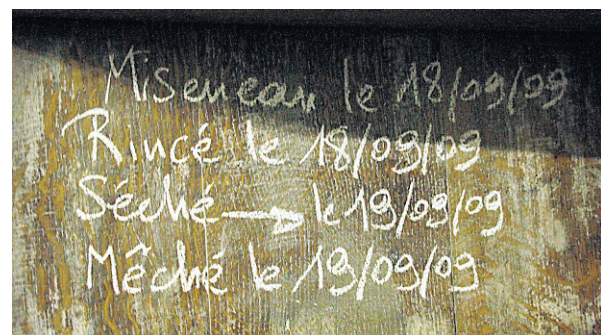 Mis en eau le 18/09/09
Rincé le 18/09/09
Séché → le 19/09/09
Mêché le 19/09/09